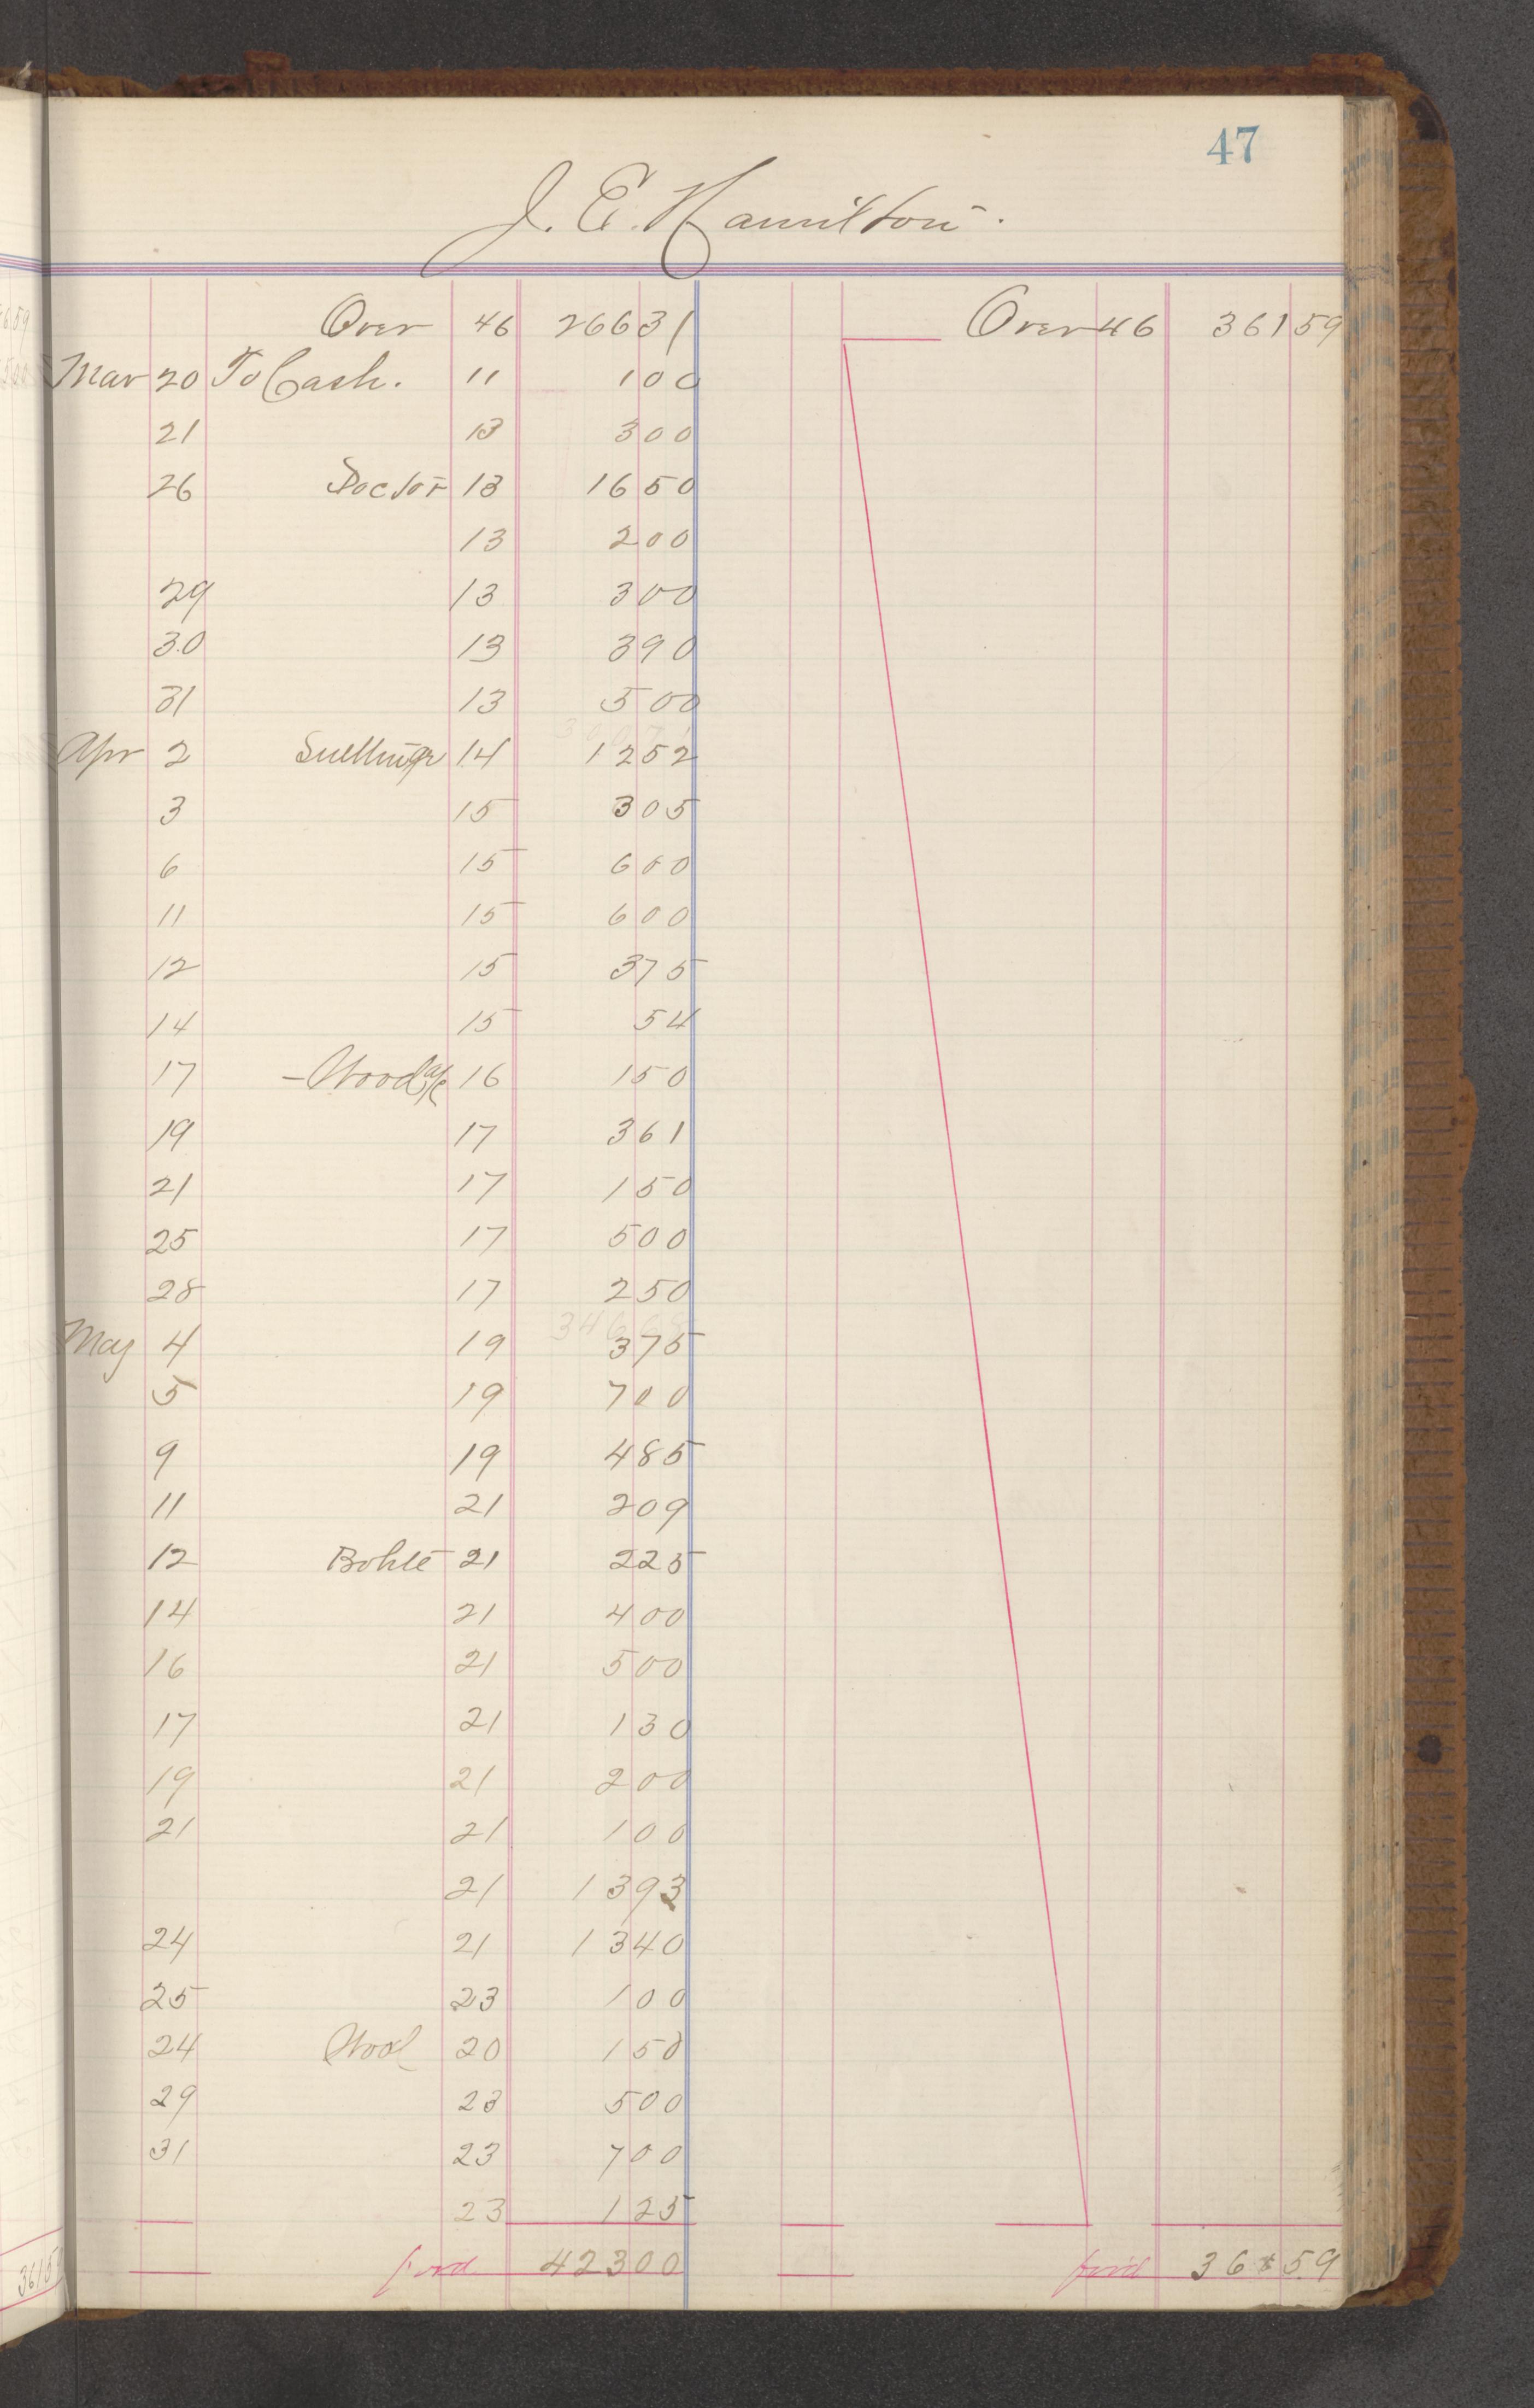 47
J. E. Hamilton.
Over 46 26631 Over 46 36159
Mar 20 To Cash. 11 100
21 13 300
26 Doctor 13 1650
13 200
29 13 300
30 13 390
31 13 500
Apr 2 Snellings 14 1252
3 15 305
6 15 600
11 15 600
12 15 375
14 15 54
17 - Wood a/c 16 150
19 17 361
21 17 150
25 17 500
28 17 250
34668
May 4 19 375
5 19 700
9 19 485
11 21 209
12 Bohle 21 225
14 21 400
16 21 500
17 21 130
19 21 200
21 21 100
21 1393
24 21 1340
25 23 100
24 Wood 20 150
29 23 500
31 23 700
23 125
ford 42300 ford 36159